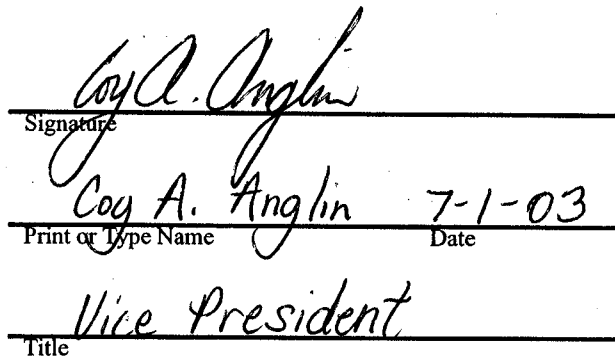 Coy A. Anglin
Signature
Coy A. Anglin 7-1-03
Print or Type Name Date
Vice President
Title